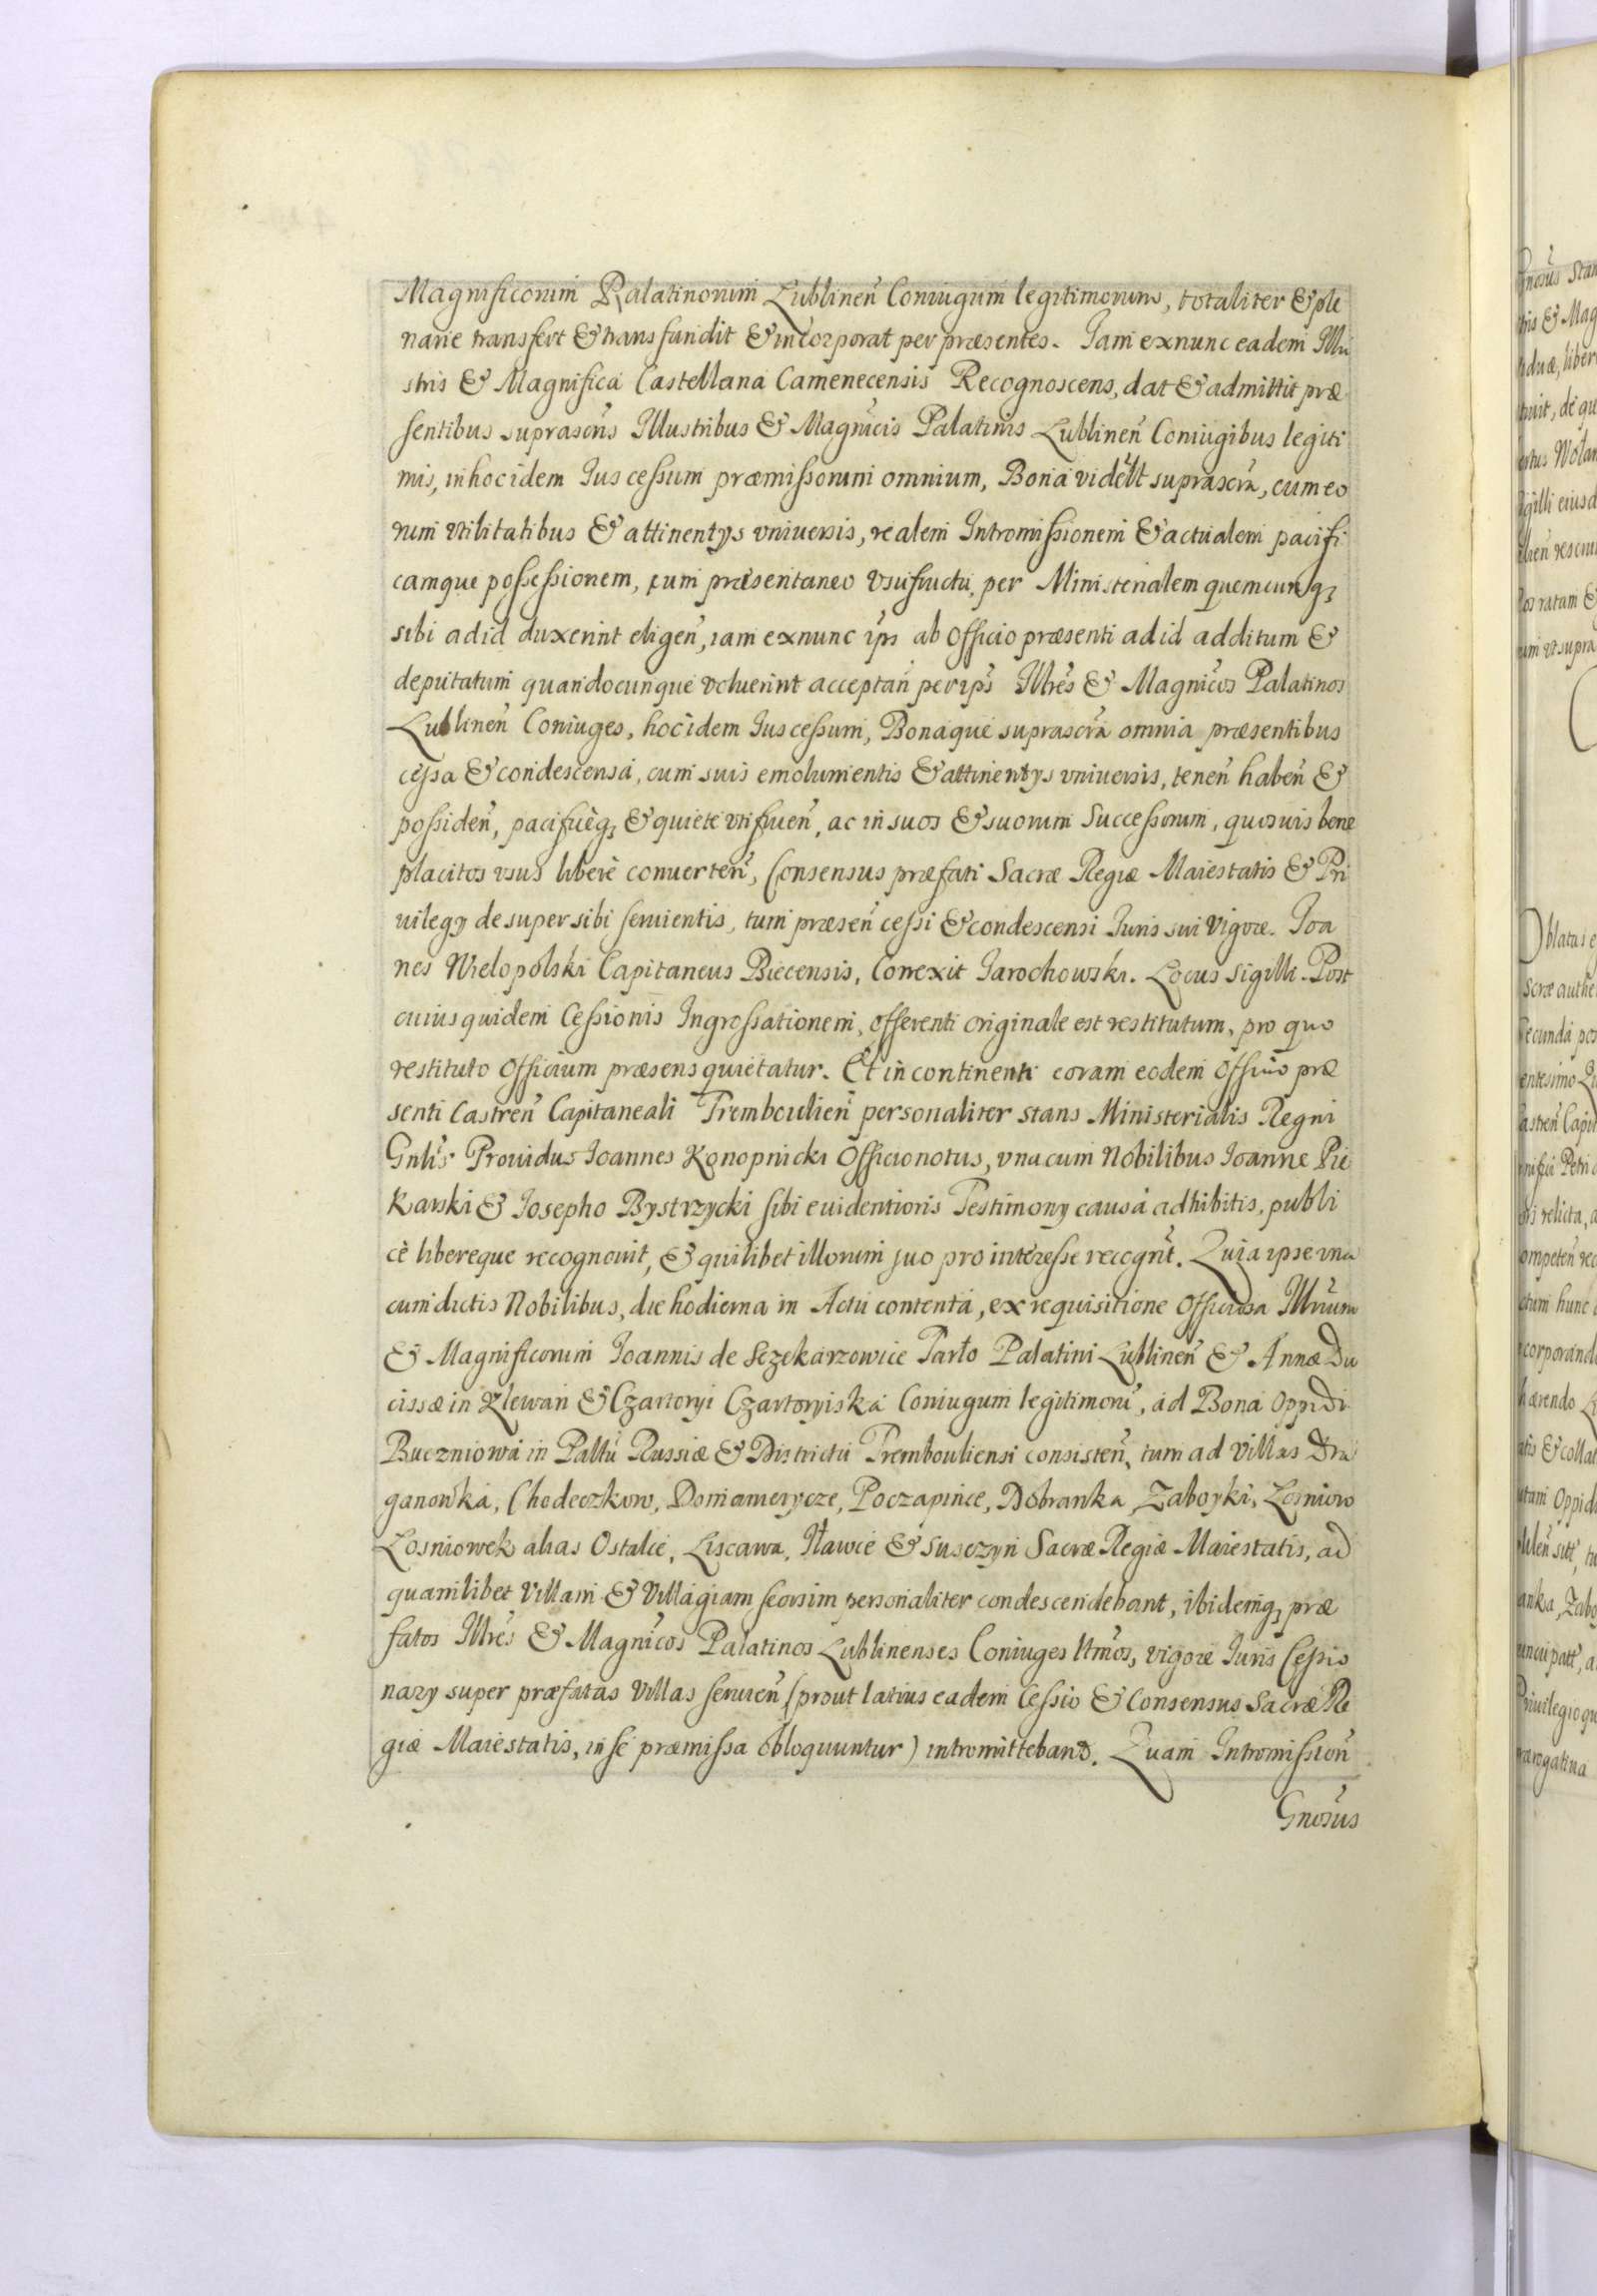 Magnificorum Palatinorum Lublineñ Coniugum legitimorum, totaliter & ple
narie transfert & transfundit & incorporat per præsentes. Iam exnunc eadem Illu
stris & Magnifica Castellana Camenecensis Recognoscens, dat & admittit præ
sentibus suprascrĩs Illustribus & Magnĩcis Palatinis Lublineñ Coniugibus legiti
mis, in hoc idem Ius cessum præmissorum omnium, Bona videlt suprascrã, cum eo
rum vtilitatibus & attinentys vniuersis, realem Intromissionem & actualem pacifi
camque possessionem, cum præsentaneo vsufructu, per Ministerialem quemcunq3
sibi ad id duxerint eligeñ, iam exnunc ipĩs ab Officio præsenti ad id additum &
deputatum quandocunque voluerint acceptañ per ipõs Illres & Magnĩcos Palatinos
Lublineñ Coniuges, hoc idem Ius cessum, Bonaque suprascrã omnia præsentibus
cessa & condescensa, cum suis emolumentis & attinentys vniuersis, teneñ habeñ &
possideñ, pacificèq3 & quietè vtifrueñ, ac in suos & suorum Successorum, quosuis bene
placitos vsus liberè conuerteñ, Consensus præfati Sacræ Regiæ Maiestatis & Pri
uilegy desuper sibi seruientis, tum præseñ cessi & condescensi Iuris sui vigore. Ioa
nes Wielopolski Capitaneus Biecensis, Correxit Iarochowski. Locus Sigilli. Post
cuius quidem Cessionis Ingrossationem, offerenti originale est restitutum, pro quo
restituto Officium præsens quietatur. Et in continenti coram eodem Officio præ
senti Castreñ Capitaneali Trembouleñ personaliter stans Ministerialis Regni
Gnlis Prouidus Ioannes Konopnicki Officio notus, vna cum Nobilibus Ioanne Pie
karski & Iosepho Bystrzycki sibi euidentioris Testimony causa adhibitis, publi
cè libereque recognouit, & quilibet illorum suo pro interesse recognt. Quia ipse vna
cum dictis Nobilibus, die hodierna in Actu contenta, ex requisitione Officiosa Illrium
& Magnificorum Ioannis de Sczekarzowice Tarło Palatini Lublineñ & Annæ Du
cissæ in Klewan & Czartoryi Czartoryiska Coniugum legitimorũ, ad Bona Oppidi
Buczniowa in Pallũ Russiæ & Districtu Trembouliensi consisteñ, tum ad Villas Dra
ganowka, Chodeczkow, Domamerycze, Poczapince, Dobranka, Zaboyki, Losniow
Losniowek alias Ostalce, Liscawa, Iławce & Susczyn Sacræ Regiæ Maiestatis, ad
quamlibet Villam & Villagiam seorsim personaliter condescendebant, ibidemq3 præ
fatos Illres & Magnĩcos Palatinos Lublinenses Coniuges ltmos, vigore Iuris Cessio
nary super præfatas Villas seruieñ (prout latius eadem Cessio & Consensus Sacræ Re
giæ Maiestatis, in se præmissa obloquuntur) intromittebant. Quam Intromissioñ
Gnosus